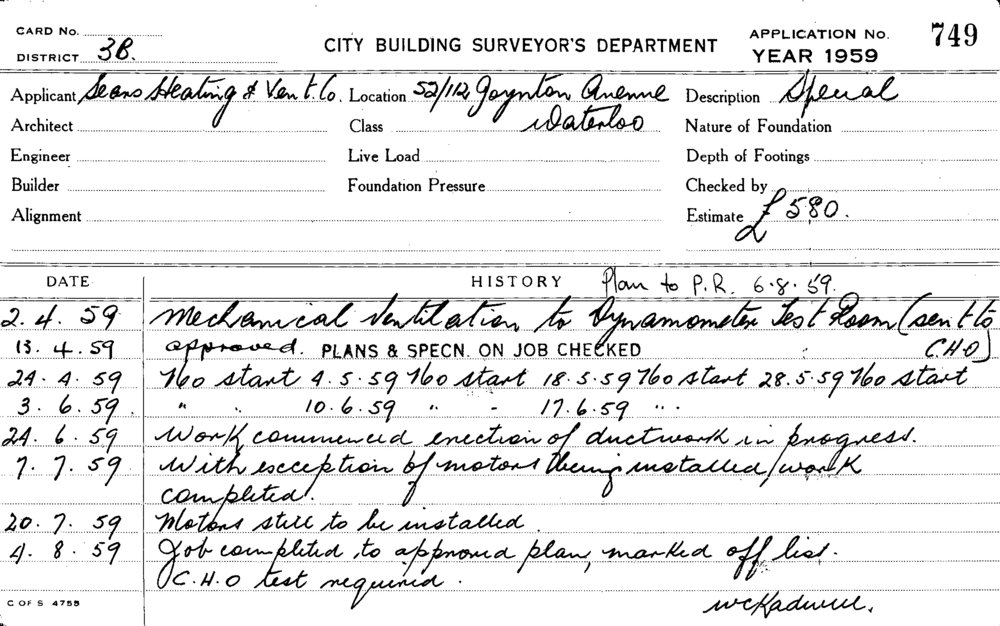 CARD No.
DISTRICT 3B.
CITY BUILDING SURVEYOR'S DEPARTMENT
APPLICATION No. 749
YEAR 1959
Applicant Sears Heating & Vent. Co. Location 52/112 Joynton Avenue Description Special
Architect Class Waterloo Nature of Foundation
Engineer Live Load Depth of Footings
Builder Foundation Pressure Checked by
Alignment Estimate £580.
DATE HISTORY Plan to P.R. 6.8.59.
2.4.59 Mechanical Ventilation to Dynamometer Test Room (sent to
13.4.59 approved. PLANS & SPECN. ON JOB CHECKED C.H.O)
24.4.59 No start 4.5.59 No start 18.5.59 No start 28.5.59 No start
3.6.59. " " 10.6.59 " " 17.6.59 " "
24.6.59 Work commenced erection of ductwork in progress.
7.7.59 With exception of motors being installed, work
completed.
20.7.59 Motors still to be installed.
4.8.59 Job completed to approved plan, marked off list.
C.H.O test required.
C OF S 4755